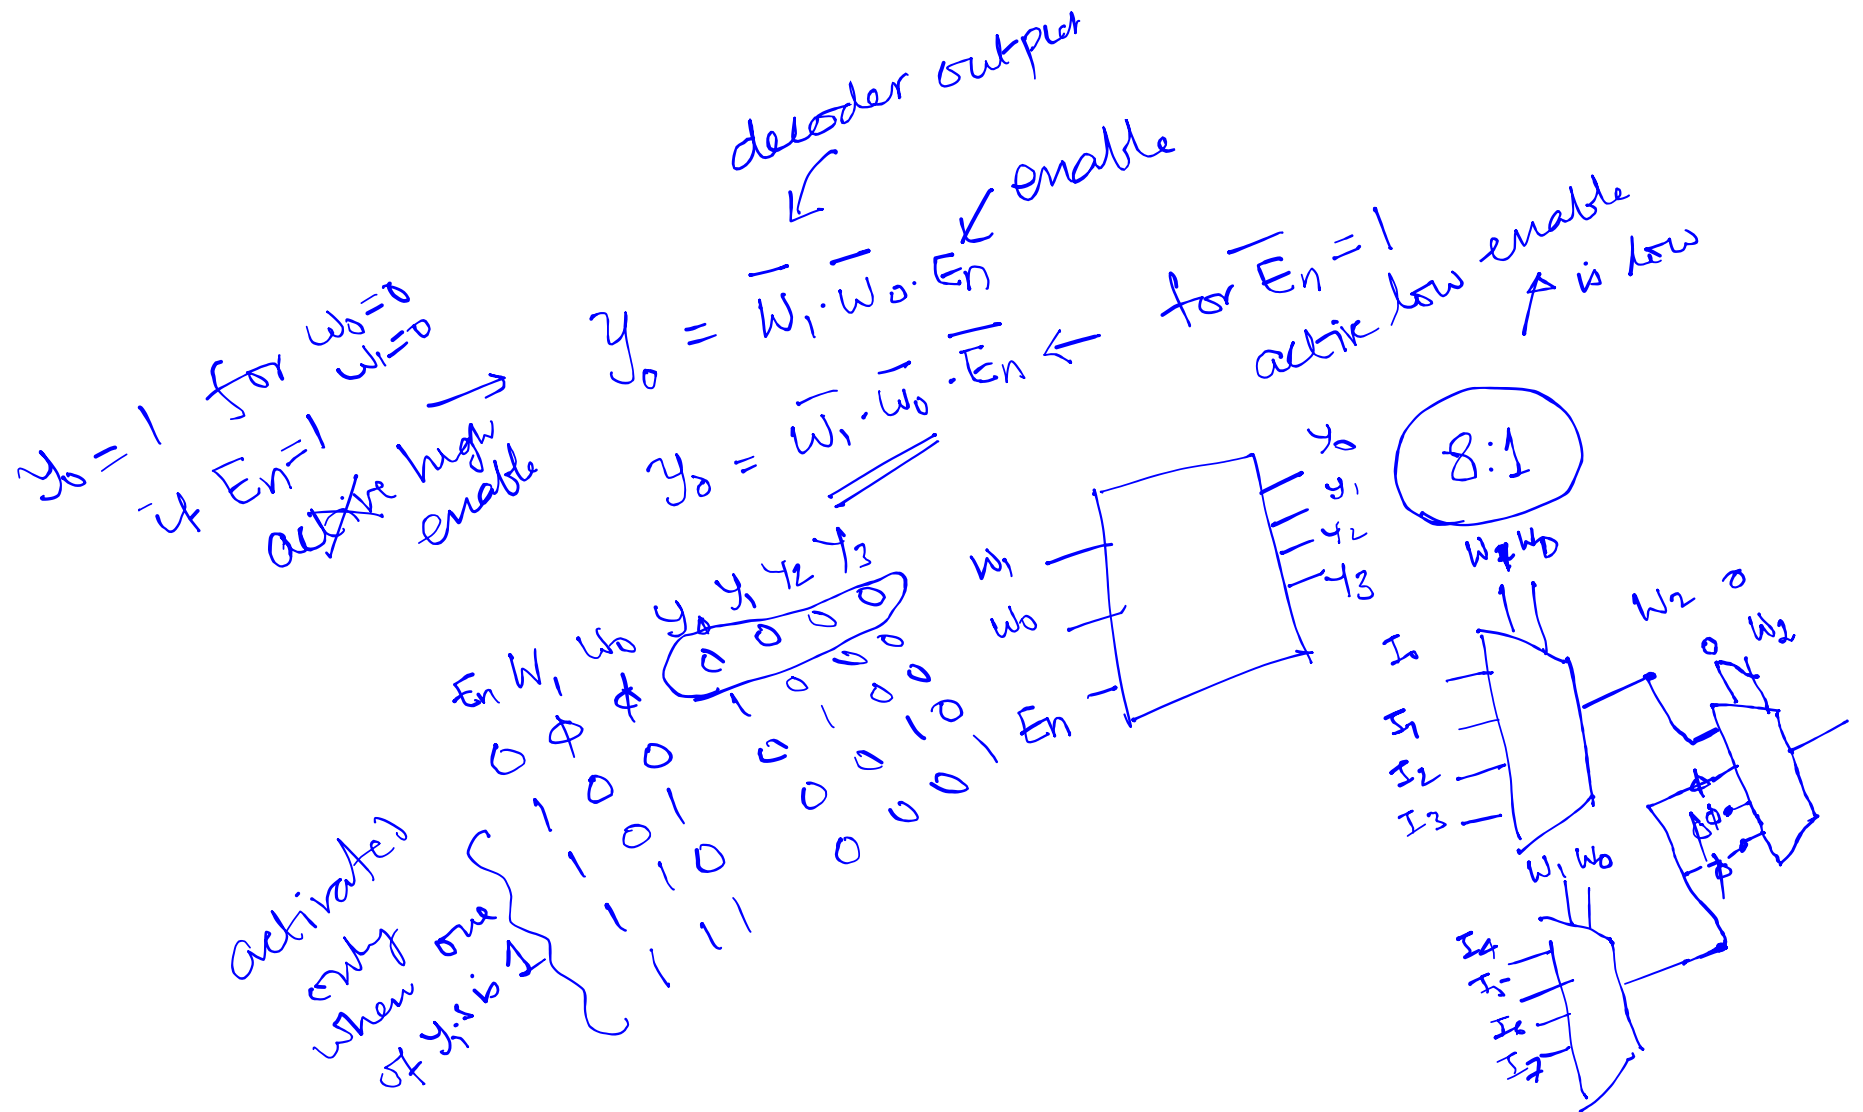 decoder output
enable
y0 = 1 for w0=0
w1=0
if En=1
active high
enable
y0 = W̅1·W̅0·En
y0 = W̅1·W̅0·E̅n̅
for E̅n̅ = 1
active low enable
is low
En W1 W0 y0 y1 y2 y3
0 ϕ ϕ 0 0 0 0
1 0 0 1 0 0 0
1 0 1 0 1 0 0
1 1 0 0 0 1 0
1 1 1 0 0 0 1
activated
only
when one
of yi's is 1
W1
W0
En
y0
y1
y2
y3
8:1
W1 W0
I0
I1
I2
I3
W2 0
0 W2
ϕ
ϕ
W1 W0
I4
I5
I6
I7